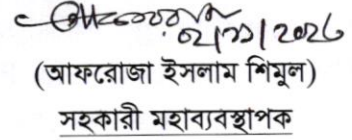 ০২/১১/২০২৫
(আফরোজা ইসলাম শিমুল)
সহকারী মহাব্যবস্থাপক